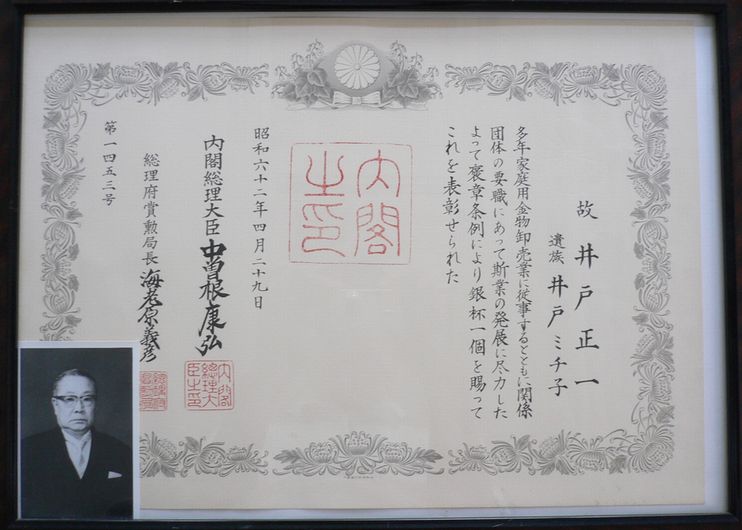 故 井戸正一
遺族 井戸ミチ子
多年家庭用金物卸売業に従事するとともに関係
団体の要職にあって斯業の発展に尽力した
よって褒章条例により銀杯一個を賜って
これを表彰せられた
内閣
之印
昭和六十二年四月二十九日
内閣総理大臣 中曽根康弘
内閣
総理大
臣之印
総理府賞勲局長 海老原義彦
第一四五三号